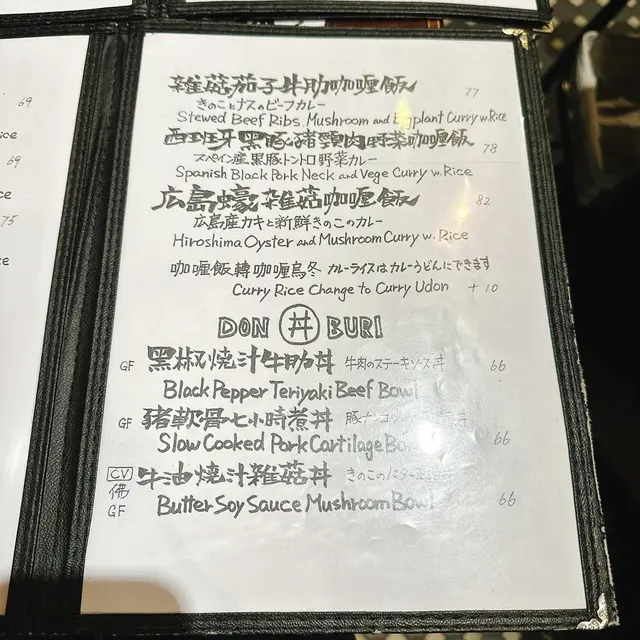 69
ice
69
ce
75
ce
雑菇茄子牛肋咖喱飯 77
きのことナスのビーフカレー
Stewed Beef Ribs, Mushroom and Eggplant Curry w. Rice
西班牙黑豚豬頸肉野菜咖喱飯 78
スペイン産黒豚トントロ野菜カレー
Spanish Black Pork Neck and Vege Curry w. Rice
広島蠔雑菇咖喱飯 82
広島産カキと新鮮きのこのカレー
Hiroshima Oyster and Mushroom Curry w. Rice
咖喱飯轉咖喱烏冬 カレーライスはカレーうどんにできます
Curry Rice Change to Curry Udon +10
DON 丼 BURI
GF 黑椒燒汁牛肋丼 牛肉のステーキソース丼 66
Black Pepper Teriyaki Beef Bowl
GF 豬軟骨七小時煮丼 豚ナンコツ 丼
Slow Cooked Pork Cartilage 66
CV 牛油燒汁雑菇丼 きのこのバター
佛
GF Butter Soy Sauce Mushroom Bowl 66